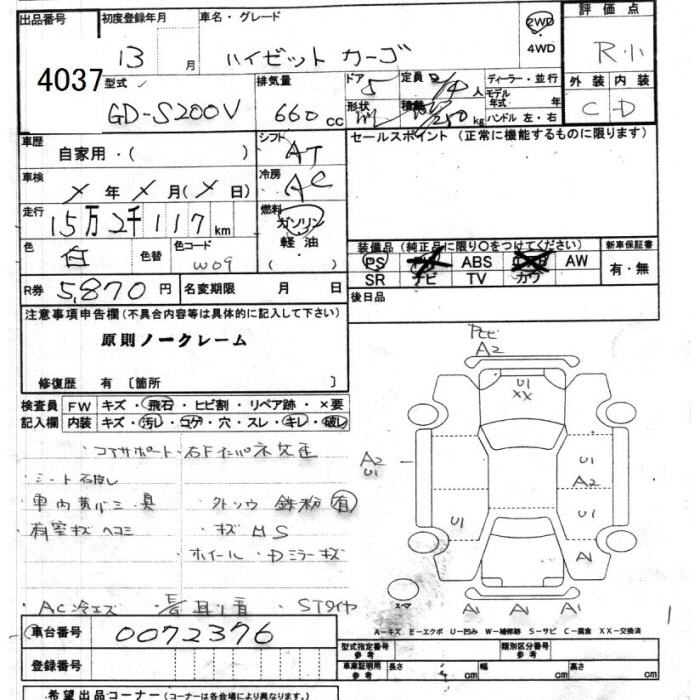 出品番号
4037
初度登録年月
13 月
車名・グレード
ハイゼット カーゴ
2WD
・
4WD
評価点
R小
型式
GD-S200V
排気量
660 cc
ドア
5
定員
2/4 人
形状
積載
250 kg
ディーラー・並行
モデル
年式 年
ハンドル 左・右
外装 内装
C D
車歴
自家用・( )
シフト
AT
セールスポイント (正常に機能するものに限ります)
車検
X 年 X 月(X 日)
冷房
AC
走行
15万2千117 km
燃料
ガソリン
軽油
( )
色
白
色替
色コード
W09
装備品 (純正品に限り○をつけてください)
新車保証書
PS ABS AW
SR ナビ TV カワ
有・無
R券 5,870 円
名変期限 月 日
後日品
注意事項申告欄(不具合内容等は具体的に記入して下さい)
原則ノークレーム
修復歴 有 〔箇所 〕
検査員
記入欄
FW キズ・飛石・ヒビ割・リペア跡・×要
内装 キズ・汚レ・コゲ・穴・スレ・キレ・破レ
・シート破レ
・車内黄バミ・臭
・外ソウ 鉄粉 有
・荷室キズ ヘコミ
・キズ
・ホイール・Dミラーキズ
・AC冷エズ
・STタイヤ
A2
U1
XX
A2
U1
U1
A2
U1
U1
A1
スペア
A1 A1 A1
A-キズ E-エクボ U-凹み W-補修跡 S-サビ C-腐食 XX-交換済
車台番号 0072376
登録番号
型式指定番号
参考
類別区分番号
参考
車庫証明用
参考
長さ cm
幅 cm
高さ cm
希望出品コーナー(コーナーは各会場により異なります。)